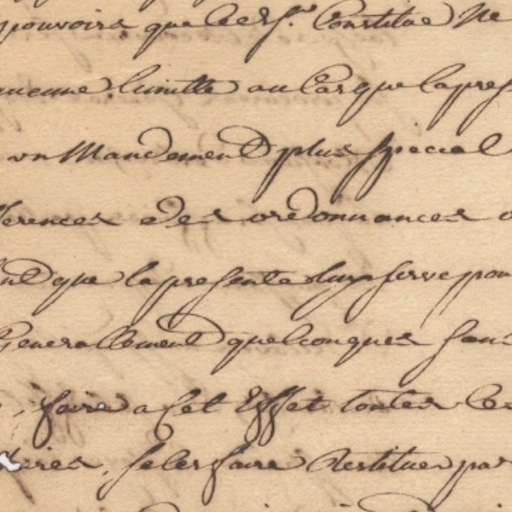 pouvoirs que led. Sr. Constitué Ne
aucune limitte au Cas que la pres
un Mandement plus special
ferences e des ordonnances o
nd que la presente luy serve pou
Generallement quelconques sans
, faire a set Effet toutes les
ires, se les faire Restituer par